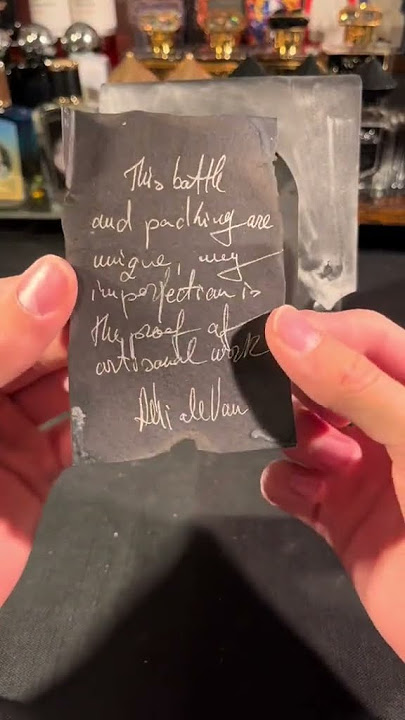 This bottle
and packing are
unique, any
imperfection is
the proof of
artisanal work
Adi ale Van